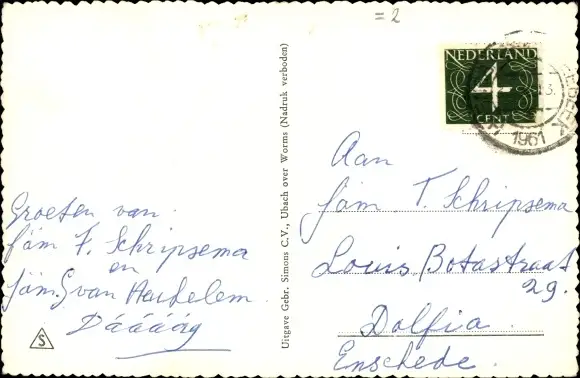 = 2
NEDERLAND
4
CENT
1961
Groeten van
fam F. Schripsema
en
fam. G van Aachelem
Dááááág
S
Uitgave Gebr. Simons C.V., Ubach over Worms (Nadruk verboden)
Aan
fam T. Schripsema
Louis Botastraat
29.
Dolfia
Enschede.